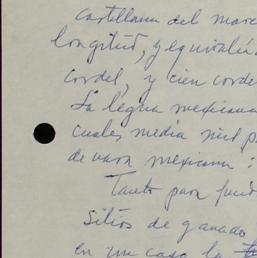 castellana del marc
longitud, y equivalía
cordel, y cien corde
La legua mexicana
cuales media mil p
de vara mexicana:
Tanto para fund
sitios de ganado
en un caso la